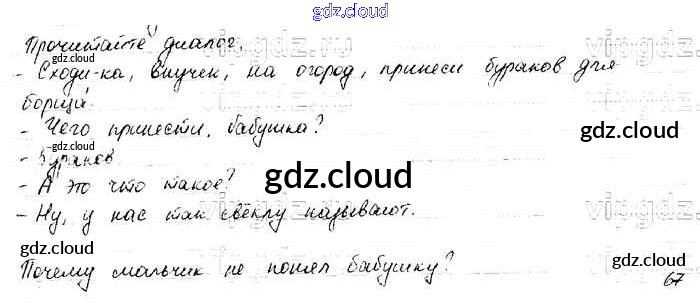 gdz.cloud
Прочитайте диалог.
- Сходи-ка, внучек, на огород, принеси бураков для
борща.
- Чего принести, бабушка?
- Бураков
- А это что такое?
- Ну, у нас так свёклу называют.
Почему мальчик не понял бабушку?
67
gdz.cloud
gdz.cloud
gdz.cloud
gdz.cloud
gdz.cloud
gdz.cloud
gdz.cloud
gdz.cloud